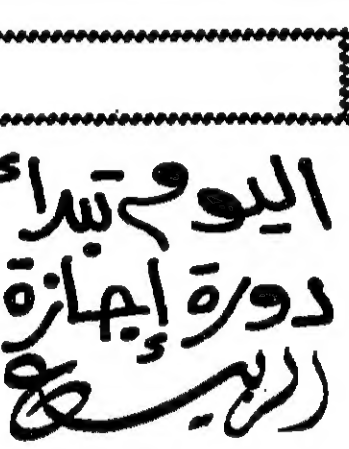 اليوم تبدأ
دورة إجازة
الربيع